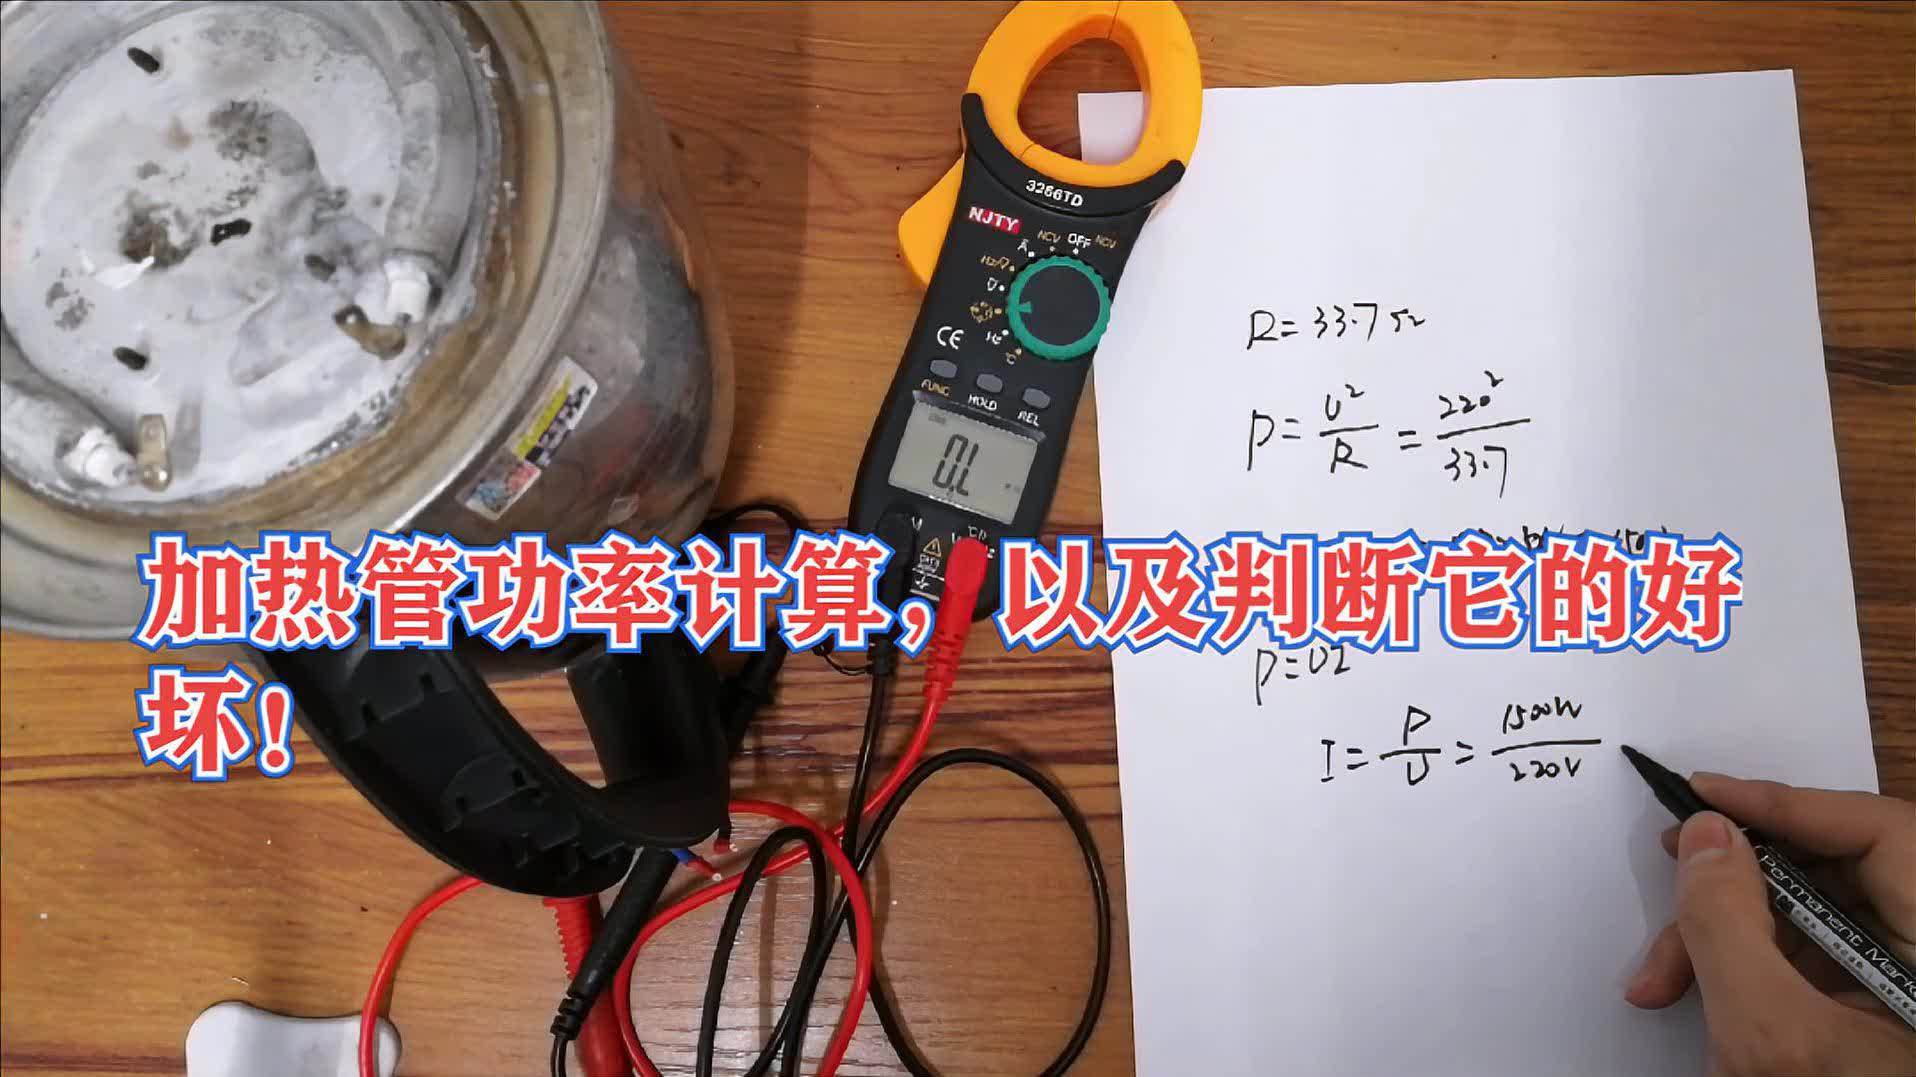 3266TD
NJTY
NCV OFF NCV
CE
FUNC HOLD REL
O.L
R=33.7Ω
P=U²/R=220²/33.7
加热管功率计算，以及判断它的好
坏！
P=UI
I=P/U=1500W/220V
Permanent Mark